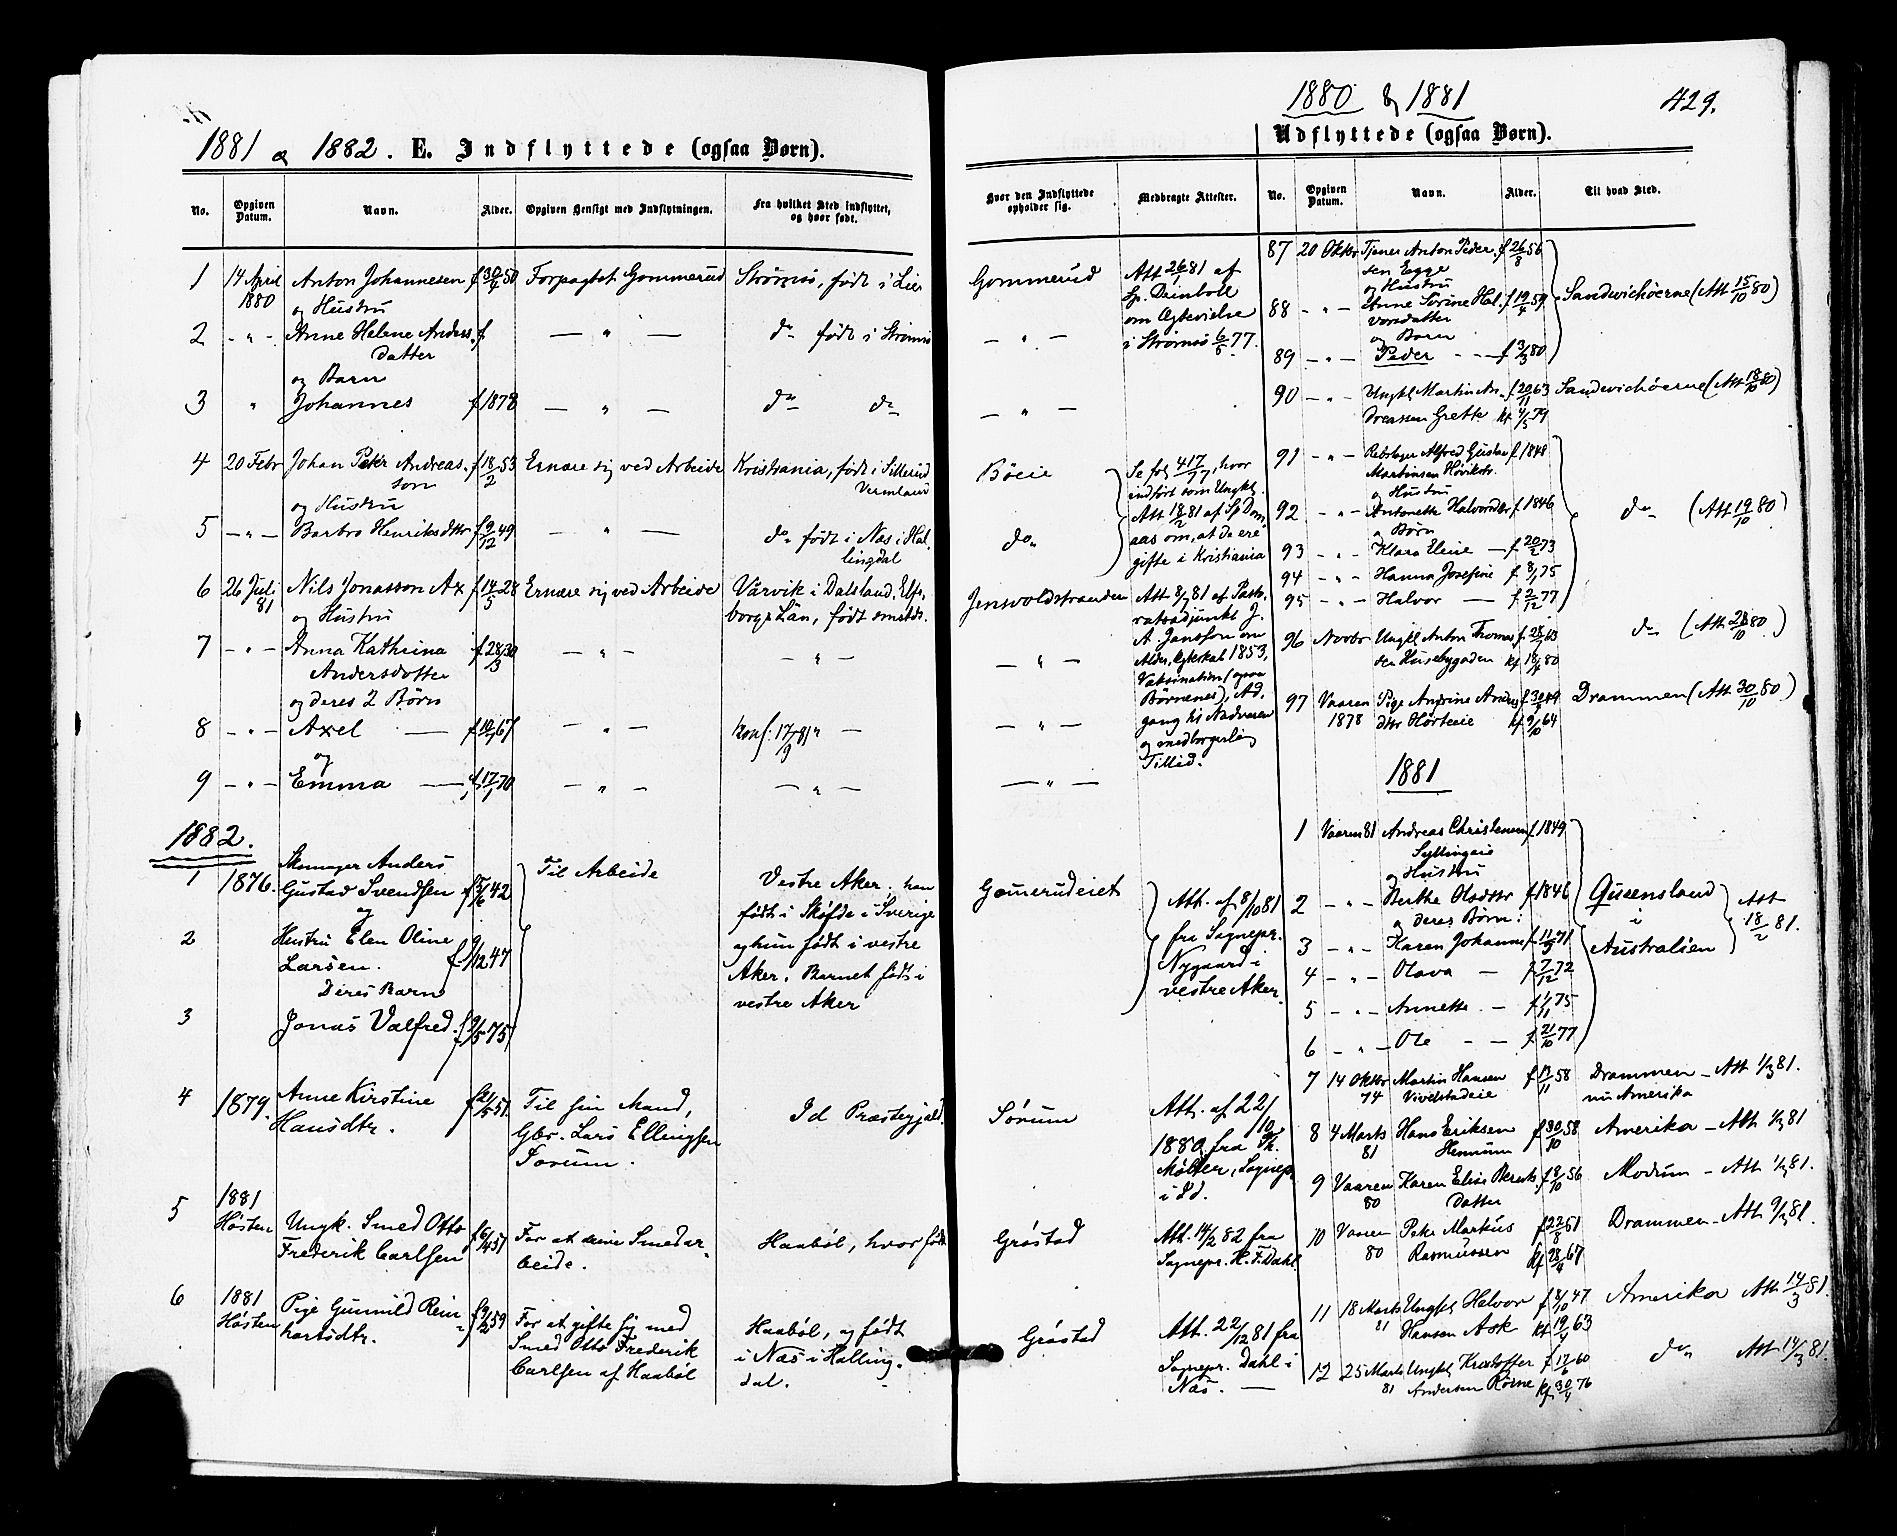 1881 & 1882. E. Indflyttede (ogsaa Børn).
No.
Opgiven Datum.
Navn.
Alder.
Opgiven Hensigt med Indflytningen.
Fra hvilket Sted indflyttet, og hvor født.
Hvor den Indflyttede opholder sig.
Medbragte Attester.
1 14 April 1880 Anton Johannesen f 30/4 50 Forpagtet Gommerud Strømsø, født i Lier Gommerud
og Hustru
2 - " - Anne Helene Anders- f — " — do født i Strømsø — " —
datter
og Barn
3 " Johannes f 1878 — " — do do — " —
Att 26/1 81 af
Sp. Deinboll
om Ægtevielse
i Strømsø 6/5 77.
4 20 Febr Johan Peter Andreas- f 18/2 53 Ernære sig ved Arbeide Kristiania, født i Sillerud Bøeie
son Vermland
og Hustru
5 - " - Barbro Henriksdtter f 9/12 49 — " — do født i Næs i Hal- do
lingdal
Se fol 417/7, hvor
indført som Ungkl.
Att 18/2 81 af Sp Dom-
aas om, at de ere
gifte i Kristiania
6 26 Juli 81 Nils Jonasson Ax f 14/5 28 Ernære sig ved Arbeide Vårvik i Dalsland, Elfs- Jensvoldstranden
og Hustru borgs Län, født smstds.
7 - " - Anna Kathrina f 28/3 30 — " — — " — — " —
Andersdotter
og deres 2 Børn
8 - " - Axel — f 10/1 67 — " — Konf. 17/9 81 " — — " —
og
9 - " - Emma — f 17/1 70 — " — — " — — " —
Att 8/7 81 af Pasto-
ratsadjunkt J.
A. Jansson om
Alder, Ægteskab 1853,
Vaksination (ogsaa
Børnenes), Ad-
gang til Nadveren
og medborgerlig
Tillid.
1882.
1 1876. Skomager Anders
Gustad Svendsen f 5/6 42 Til Arbeide Vestre Aker. han Gomerudeiet
og født i Skøfde i Sverige
2 Hustru Elen Oline og hun født i vestre
Larsen. f 9/12 47 Aker. Barnet født i
Deres Barn vestre Aker
3 Jonas Valfred. f 9/5 75
Att. af 8/10 81
fra Sognepr.
Nygaard i
vestre Aker.
4 1879. Anne Kirstine f 21/5 51 Til sin Mand, Id Præstegjæld. Sørum
Hansdtr. Gbr. Lars Ellingsen
Sørum.
Att. af 22/10
1880 fra Th.
Møller, Sognepr
i Id.
5 1881 Høsten Ungk. Smed Otto f 6/4 57 For at drive Smedar- Haabøl, hvor født Grøstad
Frederik Carlsen beide.
Att. 14/2 82 fra
Sognepr. H. F. Dahl
6 1881 Høsten Pige Gunnild Rein- f 9/2 59 For at gifte sig med Haabøl, og født Grøstad
hartsdtr. Smed Otto Frederik i Næs i Halling-
Carlsen af Haabøl dal.
Att. 22/12 81 fra
Sognepr. Dahl i
Næs. —
1880 & 1881
429.
Udflyttede (ogsaa Børn).
No.
Opgiven Datum.
Navn.
Alder.
Til hvad Sted.
87 20 Oktbr Tjener Anton Peder- f 26/8 56
sen Egge
og Hustru
88 - " - Anne Serine Hal- f 19/4 59 Sandwichøerne (Att 15/10 80)
vorsdatter
og Barn
89 - " - Peder — f 3/3 80
90 - " - Ungkl Martin An- f 20/11 63 Sandwichøerne (Att 18/10 80)
dreassen Grette kf 4/5 79
91 - " - Rebslager Alfred Gustav f 1848
Martinsen Høvikstr.
og Hustru
92 - " - Antonette Halvorsdtr f 1846 do (Att 19/10 80)
Børn
93 - " - Klara Eline — f 20/2 73
94 - " - Hanna Josefine f 8/1 75
95 - " - Halvor — f 2/12 77
96 Novbr Ungkl Anton Thomas- f 28/ 63 do (Att 28/10 80)
sen Husebygaden kf 18/4 80
97 Vaaren 1878 Pige Andrine Anders- f 49 Drammen (Att 30/10 80)
dtter Hørteeie kf 9/10 64
1881
1 Vaaren 81 Andreas Christensen f 1849
Syllingeie
og Hustru
2 - " - Berthe Olsdtter f 1846 Queensland
og deres Børn: i
3 - " - Karen Johanne f 11/3 71 Australien Att 18/2 81.
4 - " - Olava — f 7/12 72
5 - " - Annette — f 1/11 75
6 - " - Ole — f 21/10 77
7 14 Oktbr 74 Martin Hansen f 13/11 58 Drammen - Att 1/3 81.
Vivelstadeie nu Amerika
8 4 Marts 81 Hans Eriksen f 30/10 58 Amerika - Att 1/3 81
Hennum
9 Vaaren 80 Karen Elise Bernts- f 8/10 56 Modum - Att 1/3 81.
datter
10 Vaaren 80 Peter Markus f 22/8 51 Drammen - Att 9/3 81.
Rasmussen kf 28/4 67
11 18 Marts 81 Ungkl Halvor f 8/10 47 Amerika Att 14/3 81.
Hansen Ask kf 19/4 63
12 25 Marts 81 Ungkl Kristoffer f 17/6 60 do Att 14/3 81.
Andersen Rørne kf 30/4 76